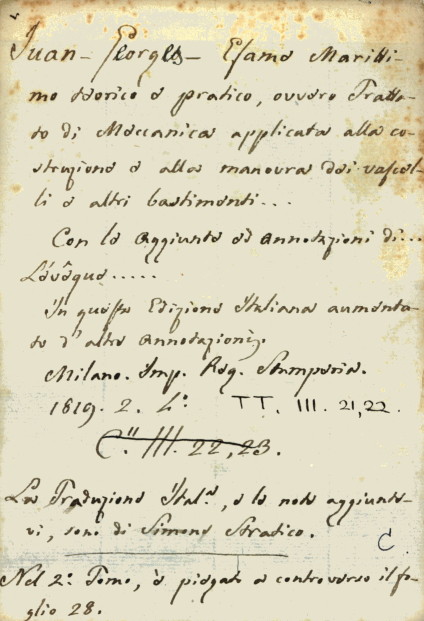 Juan - Georges - Esame Maritti-
mo teorico e pratico, ovvero Tratta-
to di Meccanica applicata alla co-
struzione e alla manovra dei vascel-
li e altri bastimenti...
Con le aggiunte ed annotazioni di...
Lévêque.....
in questa Edizione Italiana aumenta-
te d'altre annotazioni.
Milano. Imp. Reg. Stamperia.
1819. 2. 4.° TT. III. 21,22.
C." III. 22,23.
La Traduzione Ital.ª, e le note aggiunte-
vi, sono di Simone Stratico.
C
Nel 2.° Tomo, è piegato a controverso il fo-
glio 28.